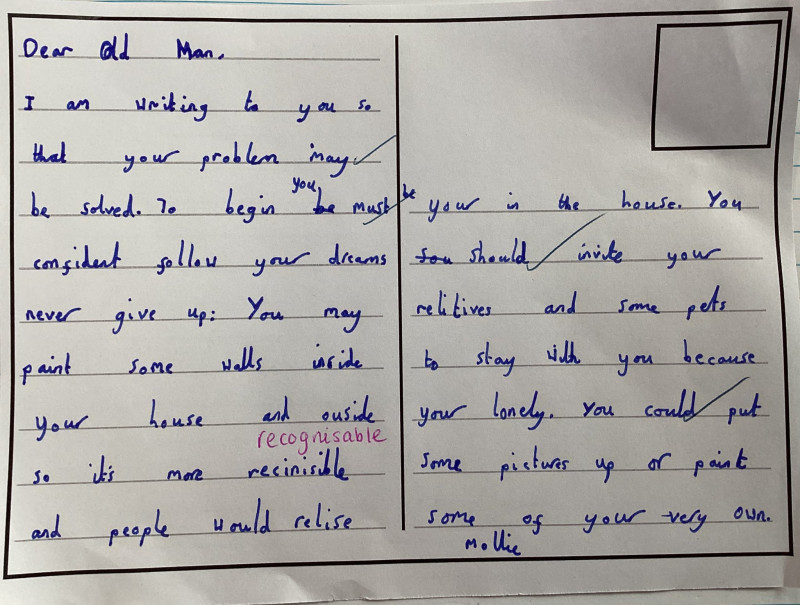 Dear Old Man.
I am writing to you so
that your problem may
be solved. To begin you be must be
confident follow your dreams
never give up: You may
paint some walls inside
your house and ouside
recognisable
so it's more recinisible
and people would relise
your in the house. You
You should invite your
relitives and some pets
to stay with you because
your lonely. You could put
some pictures up or paint
some of your very own.
Mollie